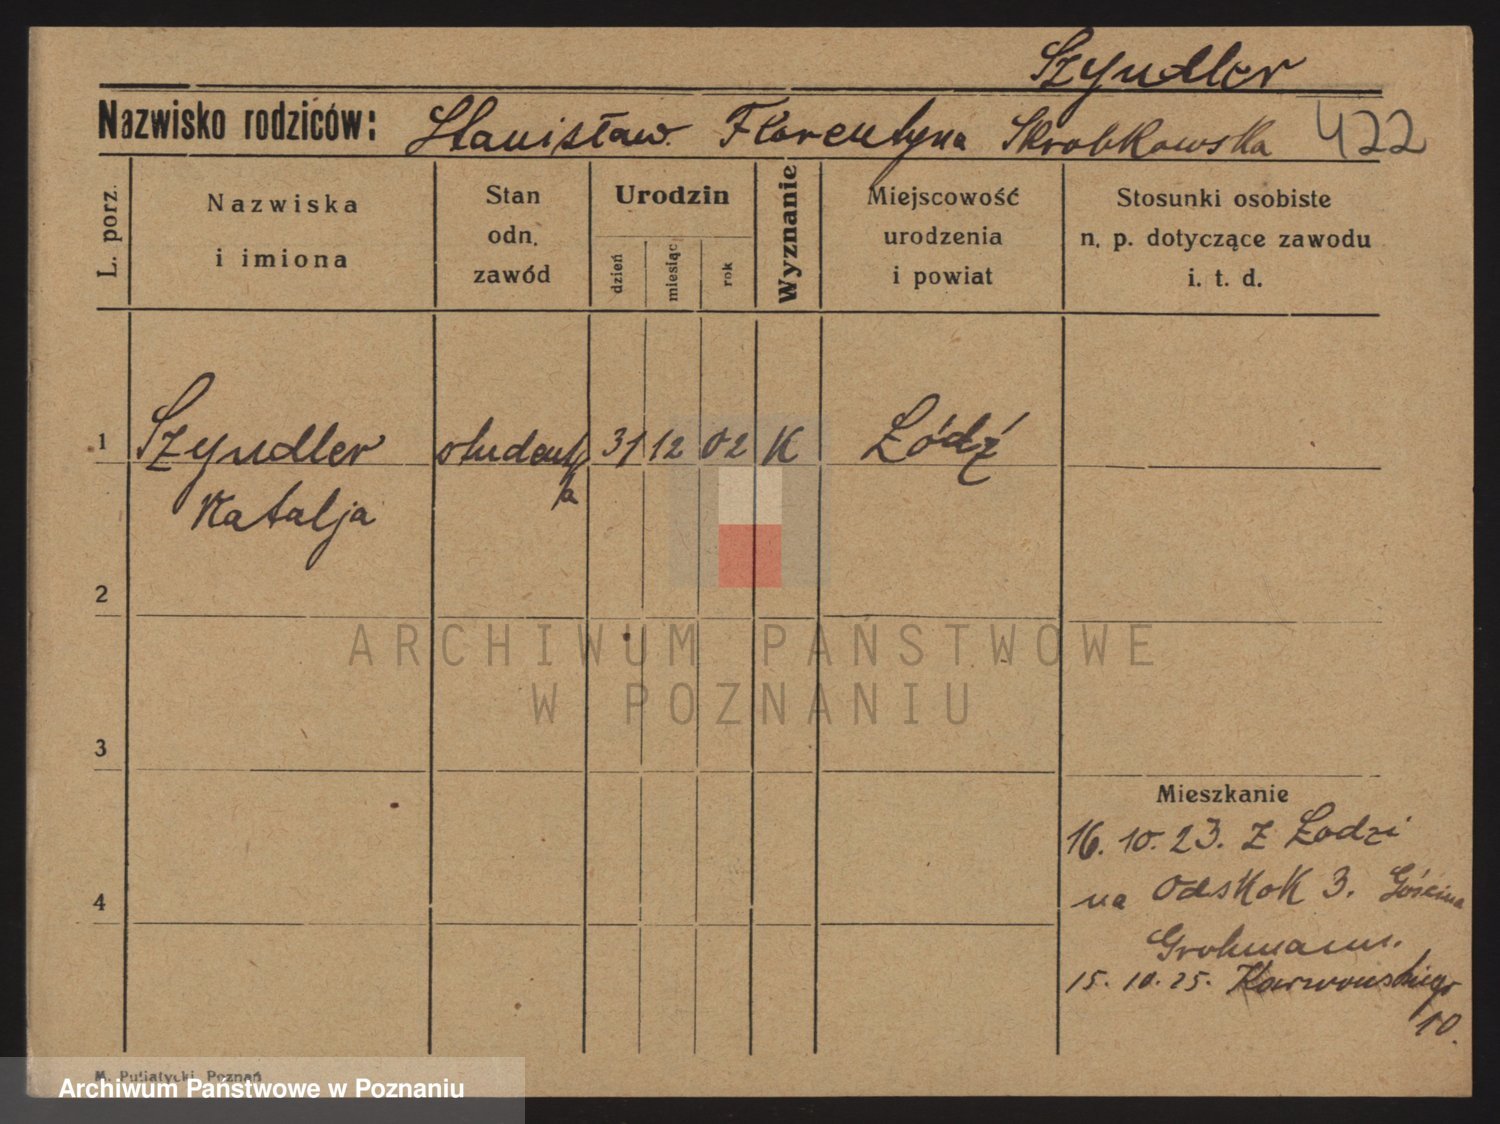 Szyndler
Nazwisko rodziców: Stanisław. Florentyna Skrobkowska 422
L. porz.
Nazwiska
i imiona
Stan
odn.
zawód
Urodzin
dzień
miesiąc
rok
Wyznanie
Miejscowość
urodzenia
i powiat
Stosunki osobiste
n. p. dotyczące zawodu
i. t. d.
1 Szyndler studentk 31 12 02 K Łódź
a
Natalja
2
ARCHIWUM PAŃSTWOWE
W POZNANIU
3
Mieszkanie
16. 10. 23. z Łodzi
4
na Odskok 3.
Grohmann.
15. 10. 25. Karwowskiego
10.
M. Putiatycki, Poznań
Archiwum Państwowe w Poznaniu